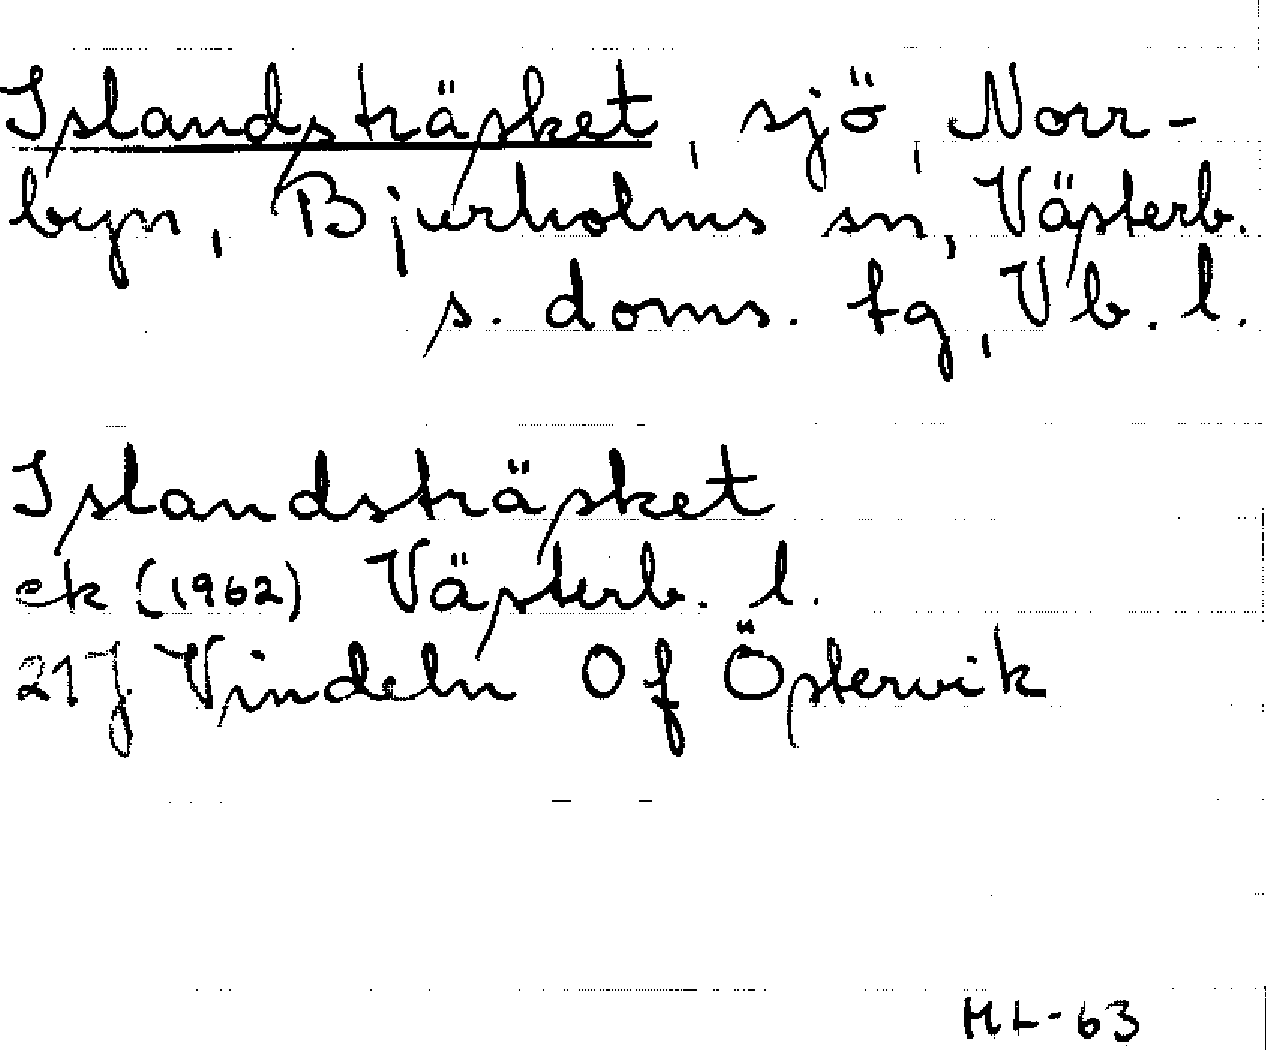 Islandsträsket, sjö, Norr-
byn, Bjurholms sn, Västerb.
s. doms. tg, Vb. l.
Islandsträsket
ek (1962) Västerb. l.
21J Vindeln Of Östervik
HL-63